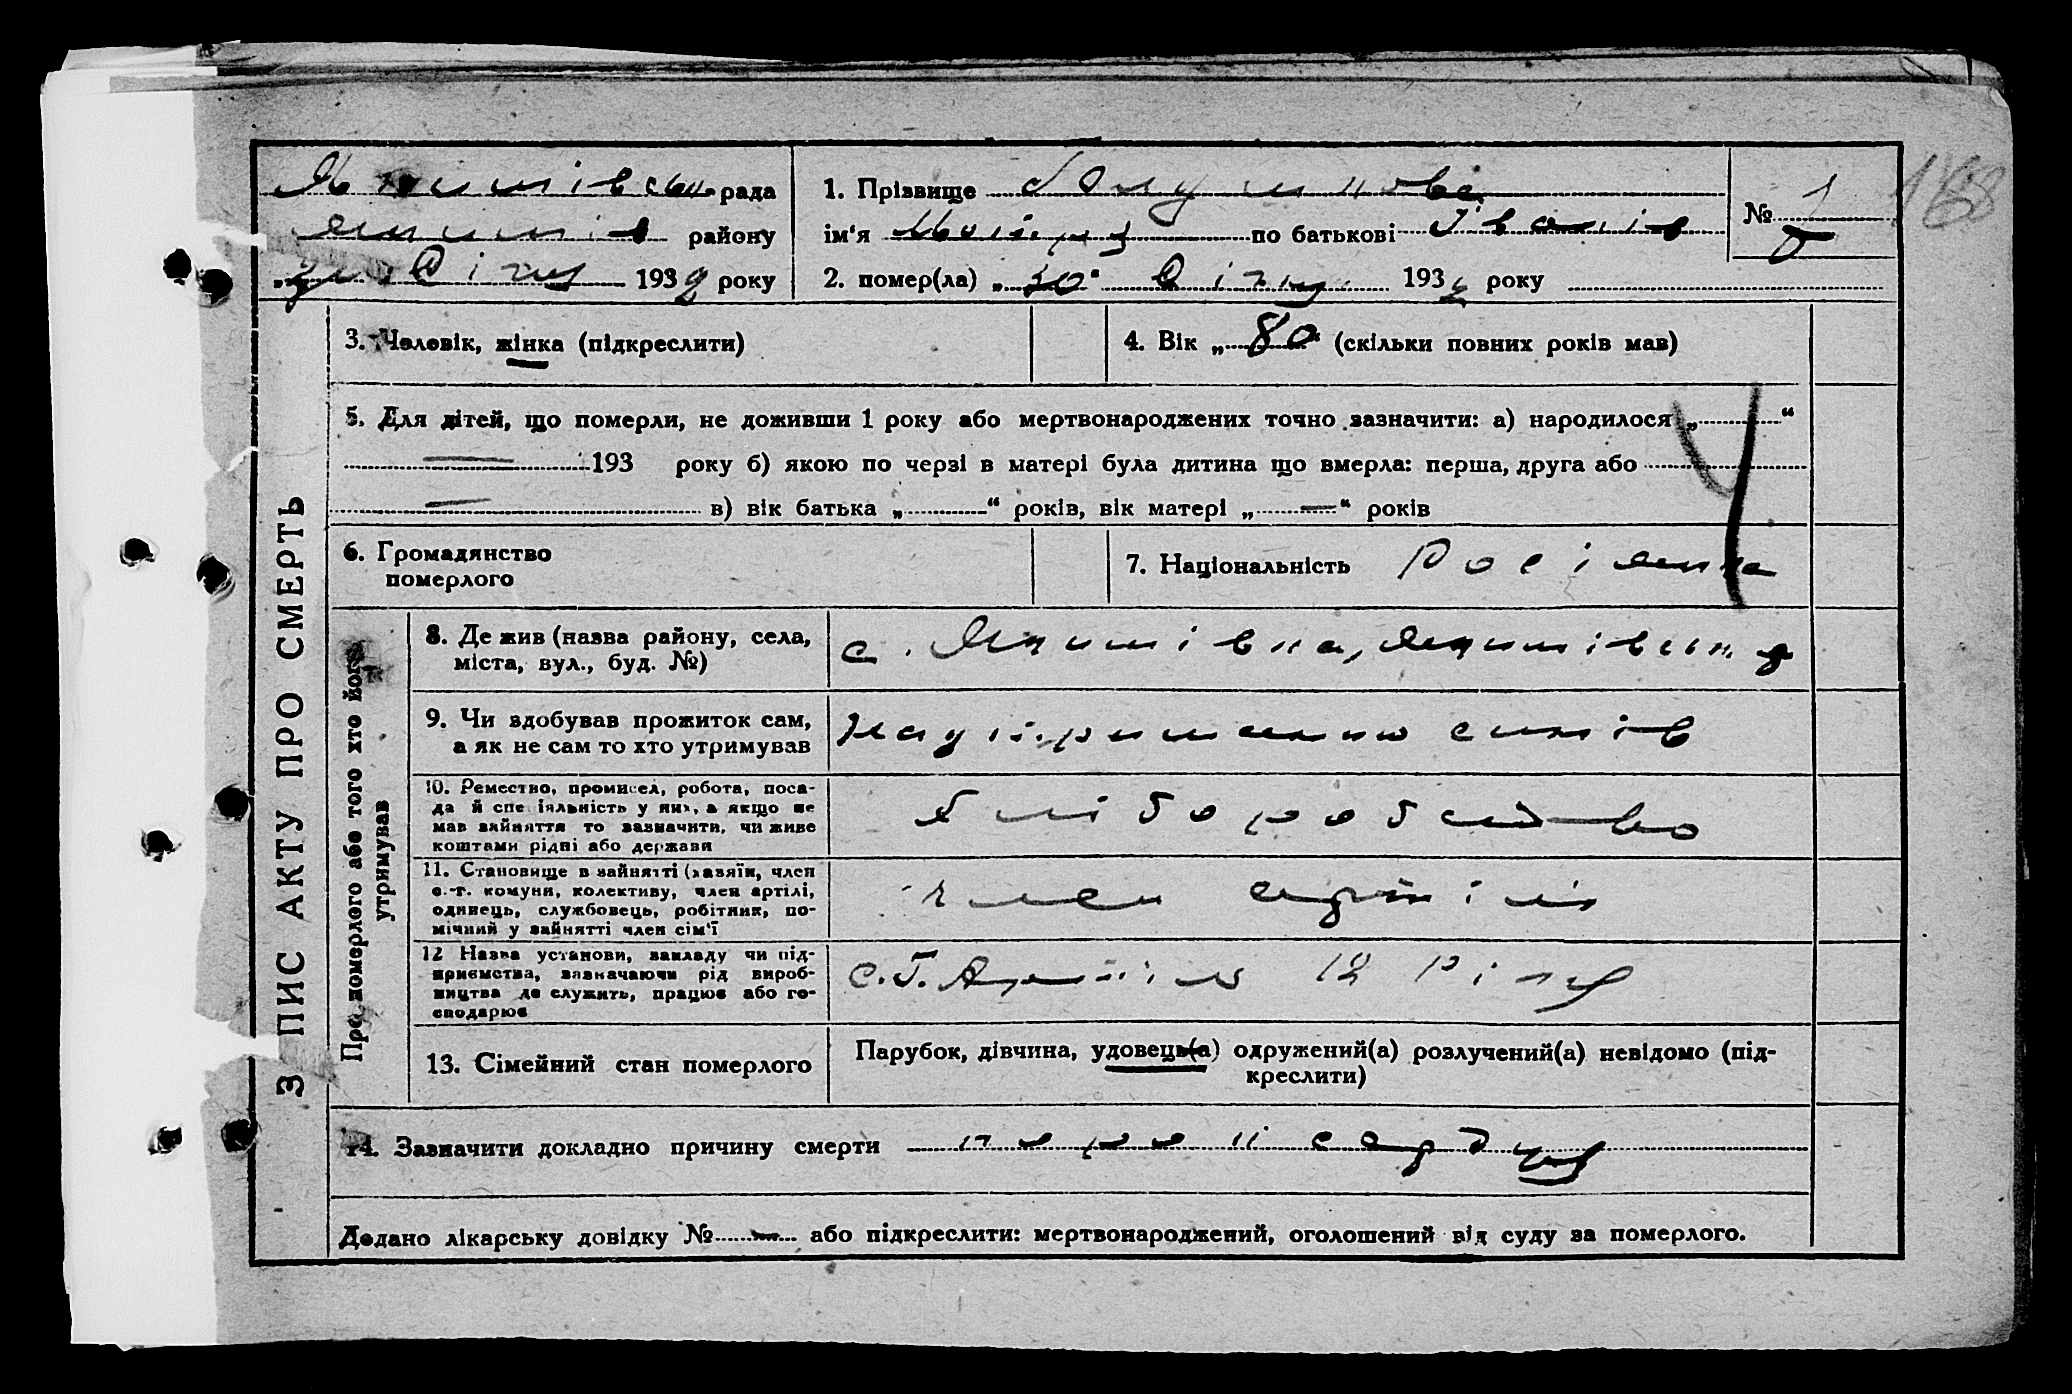 рада
району
193 2 року
1. Прізвище
ім'я по батькові Іванів
2. помер(ла) „30" Січня 193 року
№ 1
168
3. Чоловік, жінка (підкреслити)
4. Вік „80" (скільки повних років мав)
5. Для дітей, що померли, не доживши 1 року або мертвонароджених точно зазначити: а) народилося „ “
193 року б) якою по черзі в матері була дитина що вмерла: перша, друга або
в) вік батька „ “ років, вік матері „—“ років
6. Громадянство
померлого
7. Національність Росіянка
З ПИС АКТУ ПРО СМЕРТЬ
Про померлого або того хто його
утримував
8. Де жив (назва району, села,
міста, вул., буд. №)
с.
9. Чи здобував прожиток сам,
а як не сам то хто утримував
На утриманню синів
10. Ремество, промисел, робота, поса-
да й спеціяльність у них, а якщо не
мав зайняття то зазначити, чи живе
коштами рідні або держави
хліборобство
11. Становище в зайнятті (хазяїн, член
с.-г. комуни, колективу, член артілі,
одинець, службовець, робітник, по-
мічний у зайнятті член сім'ї
член артілі
12 Назва установи, закладу чи під-
приємства, зазначаючи рід вироб-
ництва де служить, працює або го-
сподарює
с.г. Артіль 12 Річчя
13. Сімейний стан померлого
Парубок, дівчина, удовець(а) одружений(а) розлучений(а) невідомо (під-
креслити)
14. Зазначити докладно причину смерти порок серця
Додано лікарську довідку №— або підкреслити: мертвонароджений, оголошений від суду за померлого.